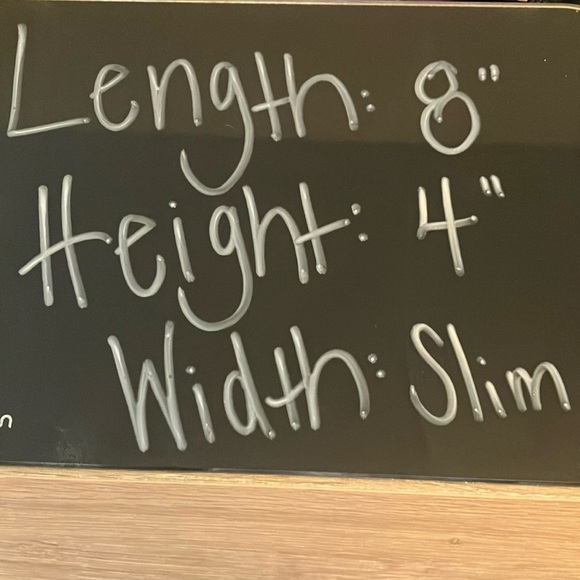 Length: 8"
Height: 4"
Width: Slim